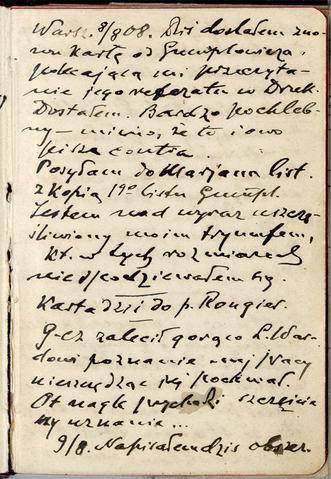 Warsz. 8/8 08. Dziś dostałem zno-
wu kartę od Gumplowicza,
polecającą mi przeczyta-
nie jego referatu w Druk.
Dostałem. Bardzo pochleb-
ny – mimo, że to i owo
pisze contra.
Posyłam do Marjana list.
z kopią 1go listu Gumpl.
Jestem nad wyraz uszczę-
śliwiony moim tryumfem,
kt. w tych rozmiarach
nie spodziewałem się.
Karta dziś do p. Rongier.
G-cz zalecił gorąco L. War-
dowi poznanie mej pracy
nieszczędząc jej pochwał.
Ot nagle przychodzi szczęście
uznania ...
9/8. Napisałem dziś obszer.